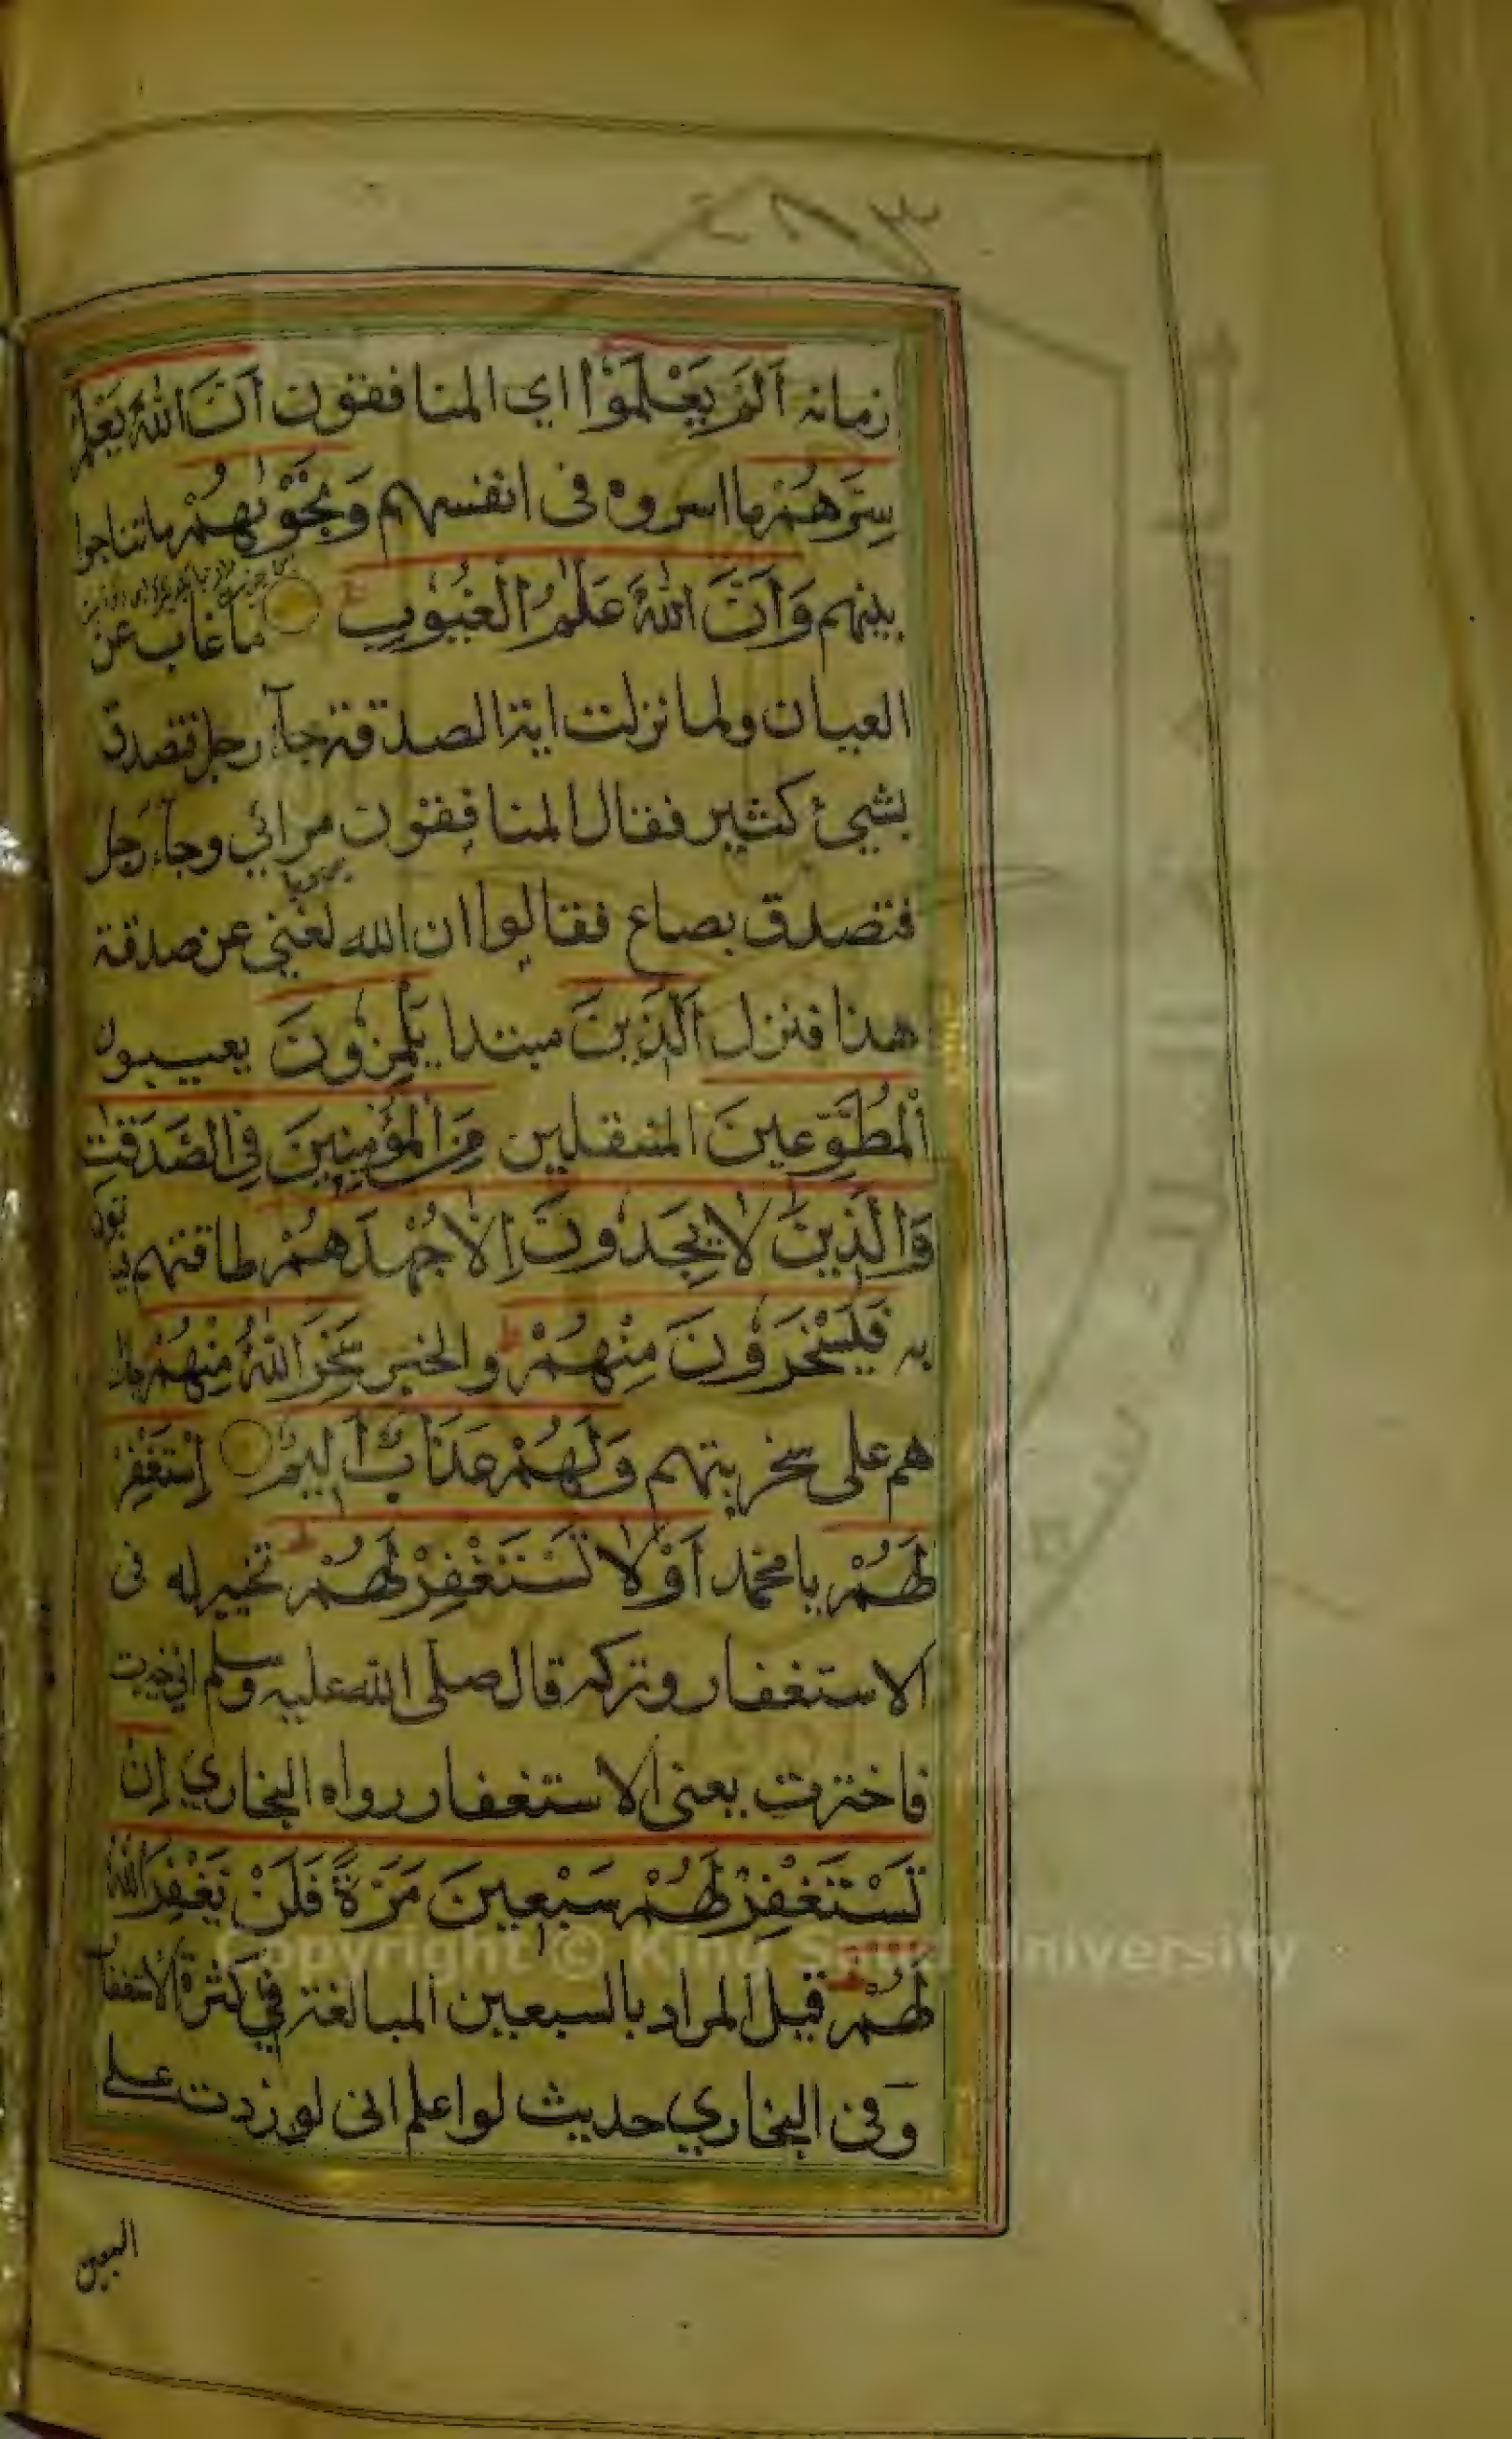 ٤٨٣
زمانه اَلَمْ يَعْلَمُوْا اي المنافقون اَنَّ اللّٰهَ يَعْلَمُ
سِرَّهُمْ ما اسروه فى انفسهم وَنَجْوٰىهُمْ ما تناجوا
بينهم وَاَنَّ اللّٰهَ عَلّٰمُ الْغُيُوْبِ ما غاب عن
العيان ولما نزلت اية الصدقة جآء رجل فتصدق
بشيئ كثير فقال المنافقون مرائي وجآء رجل
فتصدق بصاع فقالوا ان الله لغني عن صدقة
هذا فنزل اَلَّذِيْنَ مبتدا يَلْمِزُوْنَ يعيبون
اَلْمُطَّوِّعِيْنَ المتنفلين مِنَ الْمُؤْمِنِيْنَ فِى الصَّدَقٰتِ
وَالَّذِيْنَ لَا يَجِدُوْنَ اِلَّا جُهْدَهُمْ طاقتهم فياتون
به فَيَسْخَرُوْنَ مِنْهُمْ والخبر سَخِرَ اللّٰهُ مِنْهُمْ جازا
هم على سخريتهم وَلَهُمْ عَذَابٌ اَلِيْمٌ اِسْتَغْفِرْ
لَهُمْ يا محمد اَوْ لَا تَسْتَغْفِرْ لَهُمْ تخيير له فى
الاستغفار وتركه قال صلى الله عليه وسلم اني خيرت
فاخترت يعنى الاستغفار رواه البخاري اِنْ
تَسْتَغْفِرْ لَهُمْ سَبْعِيْنَ مَرَّةً فَلَنْ يَغْفِرَ اللّٰهُ
لَهُمْ قيل المراد بالسبعين المبالغة في كثرة الاستغفار
وفى البخاري حديث لو اعلم انى لو زدت على
السبعين
Copyright © King Saud University